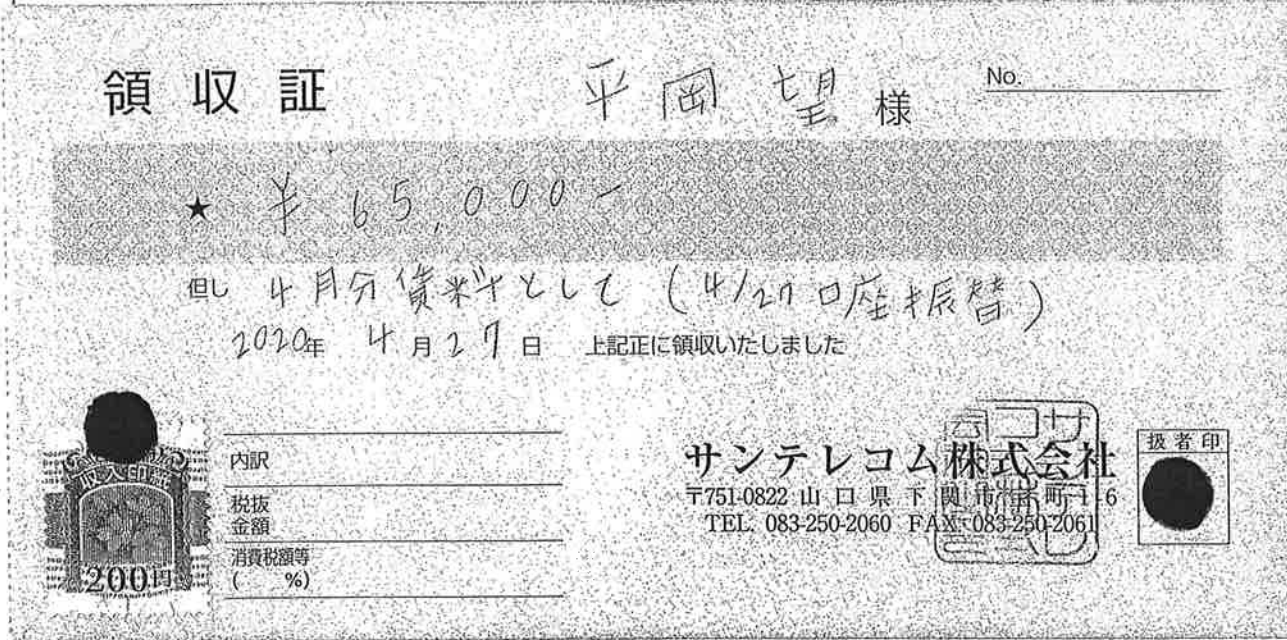 領収証 平岡 望 様 No.
★ ¥ 65,000-
但し 4月分賃料として (4/27口座振替)
2020年 4月27日 上記正に領収いたしました
収入印紙
200円
内訳
税抜
金額
消費税額等
( %)
サンテレコム株式会社
〒751-0822 山口県下関市 町1-6
TEL. 083-250-2060 FAX 083-250-2061
扱者印